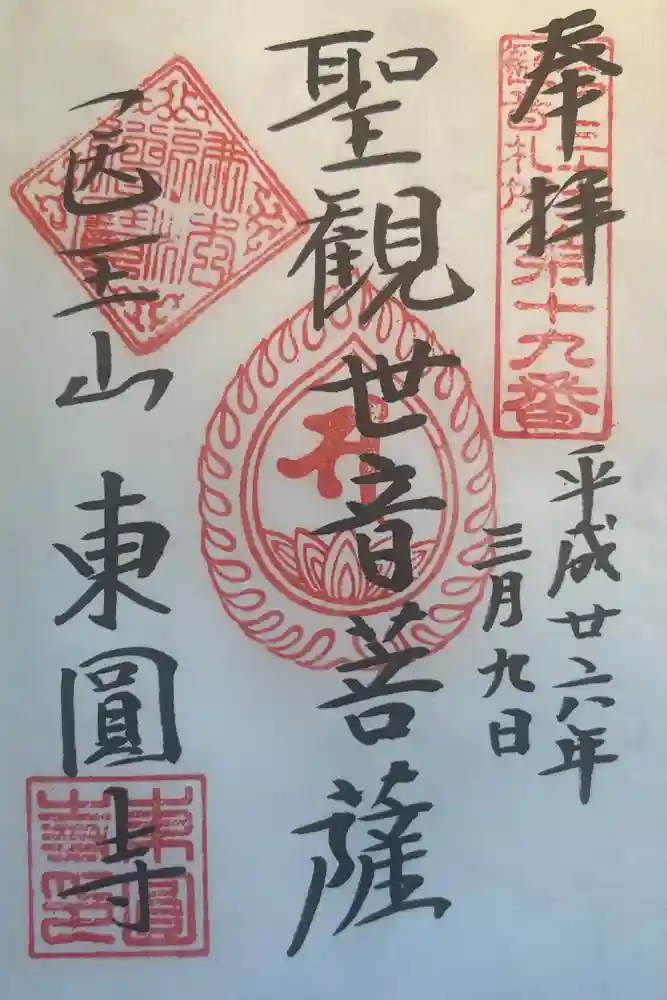 奉拝
第十九番
平成廿六年
三月九日
聖観世音菩薩
医王山 東圓寺